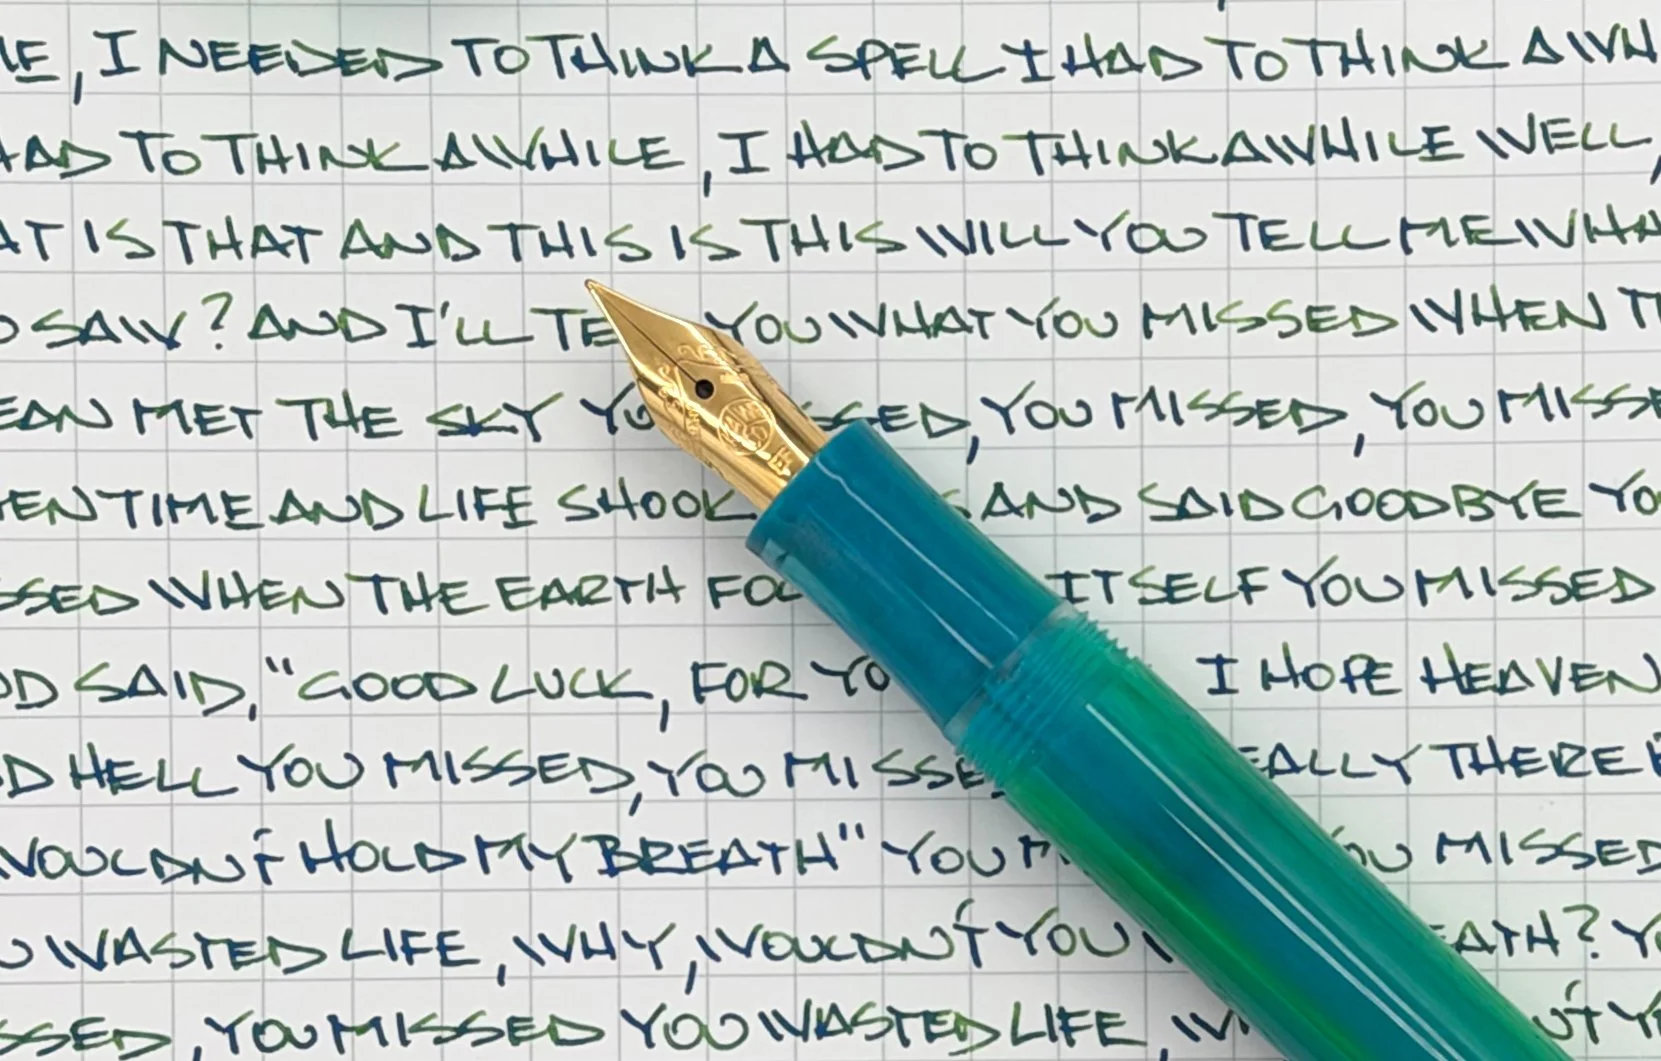 I NEEDED TO THINK A SPELL I HAD TO THINK A
TO THINK AWHILE, I HAD TO THINK AWHILE WELL,
IS THAT AND THIS IS THIS WILL YOU TELL ME
SAW? AND I'LL YOU WHAT YOU MISSED WHEN
MET THE SKY YOU MISSED, YOU
TIME AND LIFE SHOOK AND SAID GOODBYE
WHEN THE EARTH ITSELF YOU MISSED
SAID, "GOOD LUCK, FOR I HOPE HEAVEN
HELL YOU MISSED, YOU THERE
HOLD MY BREATH" YOU MISSED
WASTED LIFE, WHY, WOULDN'T YOU
, YOU MISSED YOU WASTED LIFE,
EF